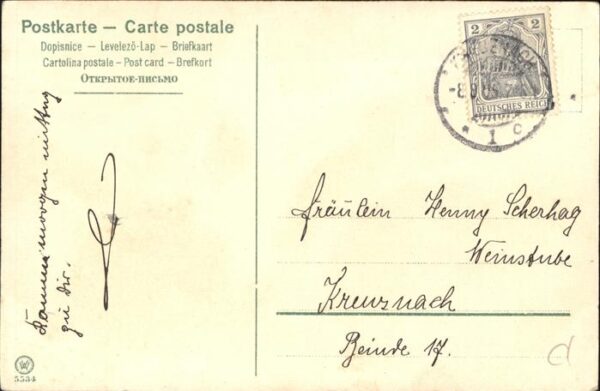 Postkarte — Carte postale
Dopisnice — Levelező-Lap — Briefkaart
Cartolina postale - Post card — Brefkort
Открытое-письмо
2 2
DEUTSCHES REICH
KREUZNACH
1 c
Komme morgen mittag
zu dir.
Fräulein Henny Scherhag
Weinstube
Kreuznach
Beinde 17.
5534